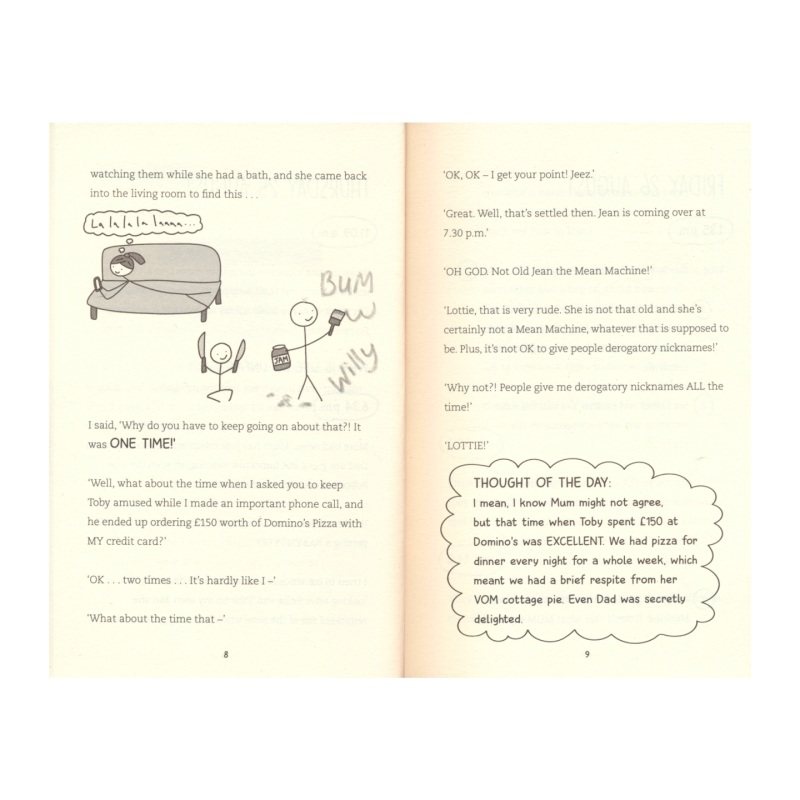 watching them while she had a bath, and she came back
into the living room to find this . . .
La la la la laaaa...
BUM
W
Willy
JAM
I said, 'Why do you have to keep going on about that?! It
was ONE TIME!'
'Well, what about the time when I asked you to keep
Toby amused while I made an important phone call, and
he ended up ordering £150 worth of Domino's Pizza with
MY credit card?'
'OK . . . two times . . . It's hardly like I –'
'What about the time that –'
8
'OK, OK – I get your point! Jeez.'
'Great. Well, that's settled then. Jean is coming over at
7.30 p.m.'
'OH GOD. Not Old Jean the Mean Machine!'
'Lottie, that is very rude. She is not that old and she's
certainly not a Mean Machine, whatever that is supposed to
be. Plus, it's not OK to give people derogatory nicknames!'
'Why not?! People give me derogatory nicknames ALL the
time!'
'LOTTIE!'
THOUGHT OF THE DAY:
I mean, I know Mum might not agree,
but that time when Toby spent £150 at
Domino's was EXCELLENT. We had pizza for
dinner every night for a whole week, which
meant we had a brief respite from her
VOM cottage pie. Even Dad was secretly
delighted.
9